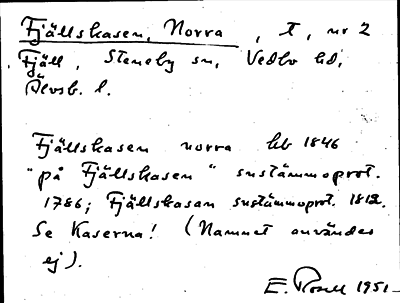 Fjällskasen, Norra, t, nr 2
Fjäll, Steneby sn, Vedbo hd,
Älvsb. l.
Fjällskasen norra hb 1846
"på Fjällskasen" sustämmoprot.
1786; Fjällskasan sustämmoprot. 1812.
Se Kaserna! (Namnet användes
ej).
E. Rosell 1951